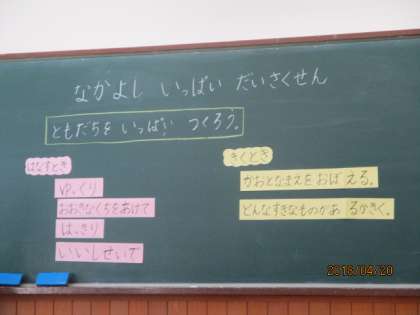 なかよし いっぱい だいさくせん
ともだちを いっぱい つくろう。
はなすとき
ゆっくり
おおきなくちをあけて
はっきり
いいしせいで
きくとき
かおとなまえをおぼえる。
どんなすきなものがあるかきく。
2018/04/20